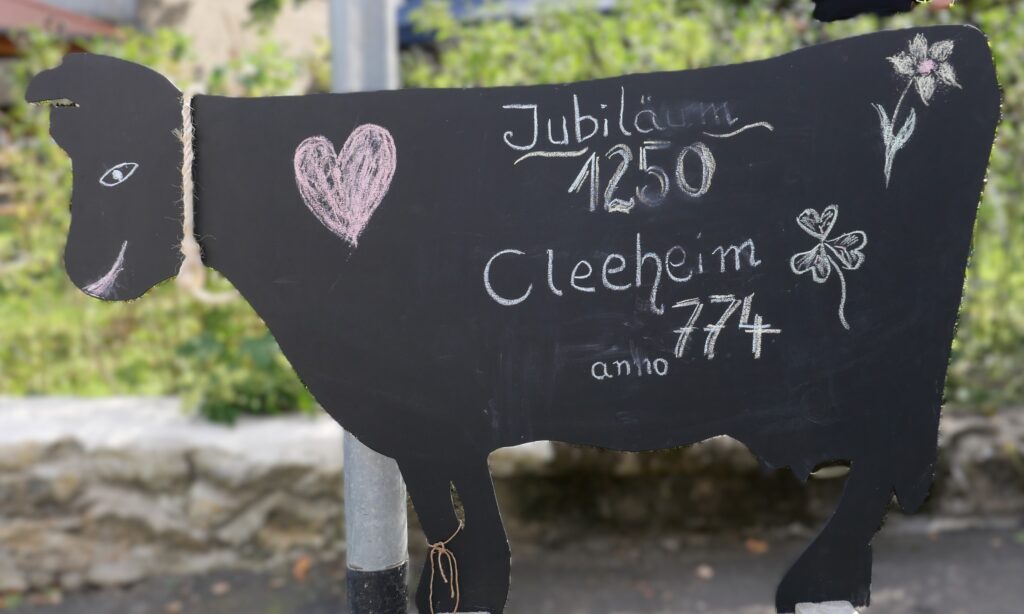 Jubiläum
1250
Cleeheim
774
anno